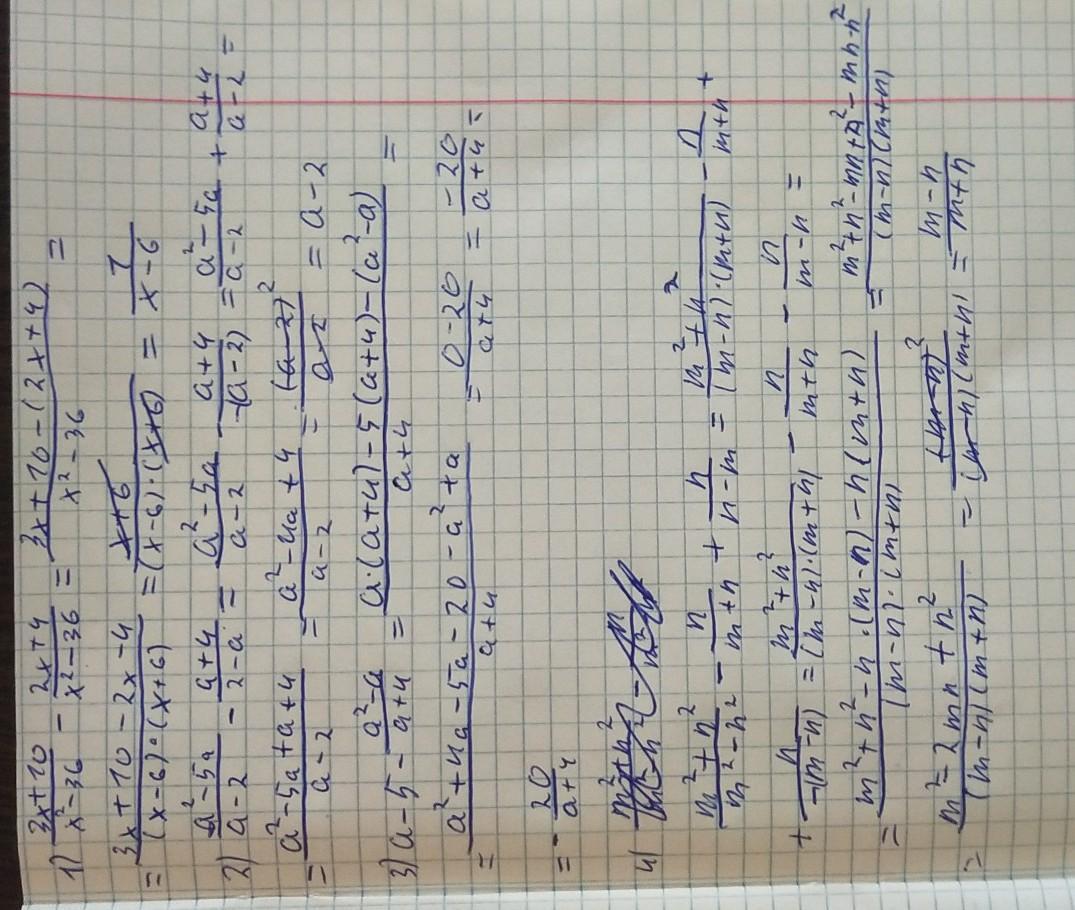 1) (3x+10)/(x²-36) - (2x+4)/(x²-36) = (3x+10-(2x+4))/(x²-36) =
= (3x+10-2x-4)/((x-6)·(x+6)) = (x+6)/((x-6)·(x+6)) = 1/(x-6)
2) (a²-5a)/(a-2) - (a+4)/(2-a) = (a²-5a)/(a-2) - (a+4)/(-(a-2)) = (a²-5a)/(a-2) + (a+4)/(a-2) =
= (a²-5a+a+4)/(a-2) = (a²-4a+4)/(a-2) = (a-2)²/(a-2) = a-2
3) a-5- (a²-a)/(a+4) = (a·(a+4)-5(a+4)-(a²-a))/(a+4) =
= (a²+4a-5a-20-a²+a)/(a+4) = (0-20)/(a+4) = (-20)/(a+4) =
= - 20/(a+4)
4)
(m²+n²)/(m²-n²) - n/(m+n) + n/(n-m) = (m²+n²)/((m-n)·(m+n)) - n/(m+n) +
+ n/(-(m-n)) = (m²+n²)/((m-n)·(m+n)) - n/(m+n) - n/(m-n) =
= (m²+n²-n·(m-n)-n(m+n))/((m-n)·(m+n)) = (m²+n²-mn+n²-mn-n²)/((m-n)(m+n)) =
= (m²-2mn+n²)/((m-n)(m+n)) = (m-n)²/((m-n)(m+n)) = (m-n)/(m+n)